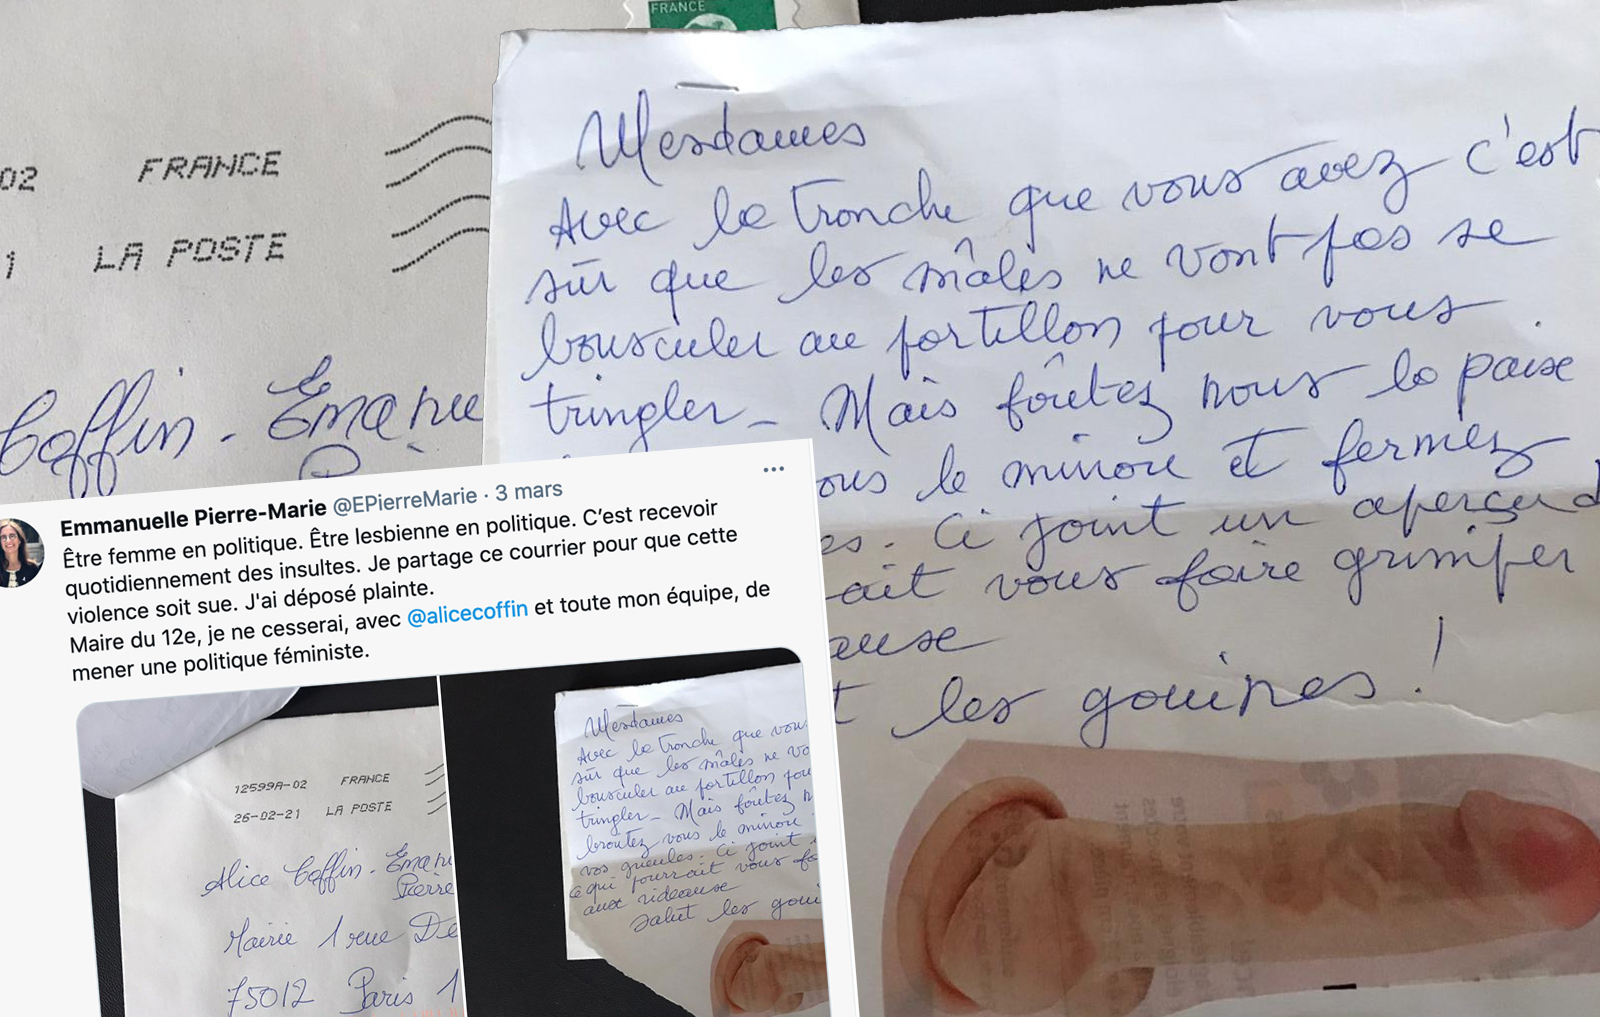 FRANCE
02 FRANCE
1 LA POSTE
Coffin - Emanue
Mesdames
Avec la tronche que vous avez c'est
sûr que les mâles ne vont pas se
bousculer au portillon pour vous
tringler - Mais foûtez nous la paise
ous le minou et fermez
es. Ci joint un aperçu d
ait vous faire grimper
ause
t les gouines !
Emmanuelle Pierre-Marie @EPierreMarie · 3 mars
Être femme en politique. Être lesbienne en politique. C'est recevoir
quotidiennement des insultes. Je partage ce courrier pour que cette
violence soit sue. J'ai déposé plainte.
Maire du 12e, je ne cesserai, avec @alicecoffin et toute mon équipe, de
mener une politique féministe.
12599A-02 FRANCE
26-02-21 LA POSTE
Alice Coffin - Emanu
Pierre
Mairie 1 rue De
75012 Paris 1
Mesdames
Avec la tronche que vous
sûr que les mâles ne vo
bousculer au portillon pou
tringler - Mais foûtez n
broutez vous le minou
vos gueules. Ci joint
ce qui pourrait vous fa
aux rideause
Salut les goui